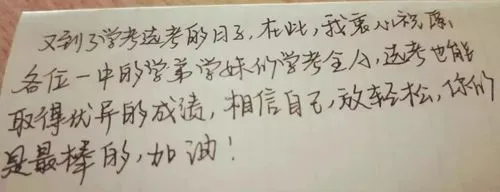 又到了学考选考的日子,在此,我衷心祝愿
各位一中的学弟学妹们学考全A,选考也能
取得优异的成绩,相信自己,放轻松,你们
是最棒的,加油!